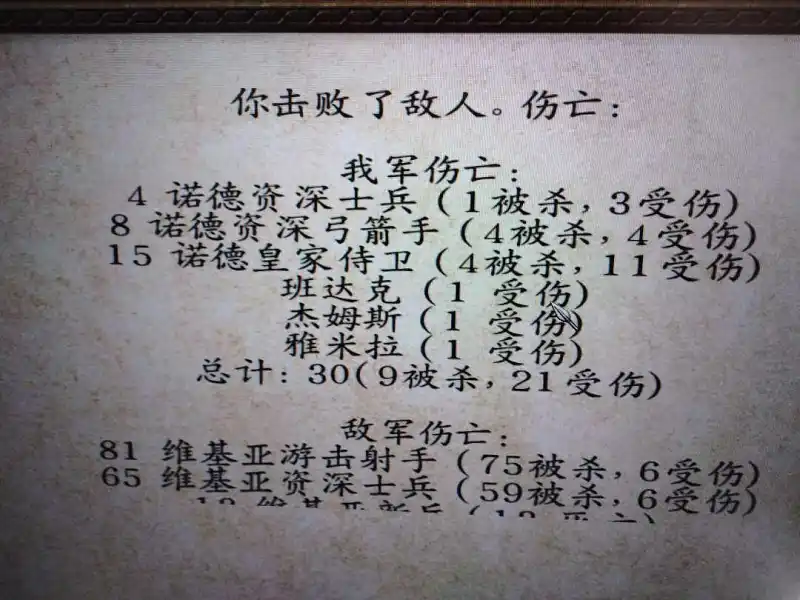 你击败了敌人。伤亡：
我军伤亡：
4 诺德资深士兵（1被杀，3受伤）
8 诺德资深弓箭手（4被杀，4受伤）
15 诺德皇家侍卫（4被杀，11受伤）
班达克（1 受伤）
杰姆斯（1 受伤）
雅米拉（1 受伤）
总计：30（9被杀，21受伤）
敌军伤亡：
81 维基亚游击射手（75被杀，6受伤）
65 维基亚资深士兵（59被杀，6受伤）